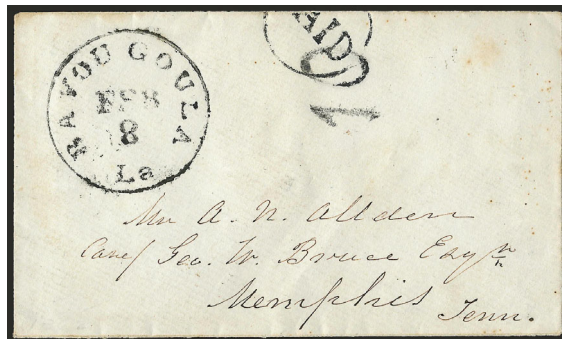 BAYOU GOULA
FEB
8
La
PAID
10
Mr A. N. Allden
Care/ Geo. W. Bruce Esqr
Memphis
Tenn.